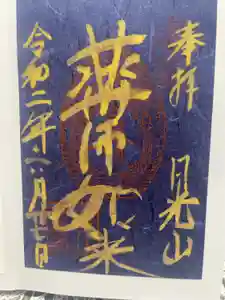 奉拝 日光山
薬師如来
令和二年八月廿七日